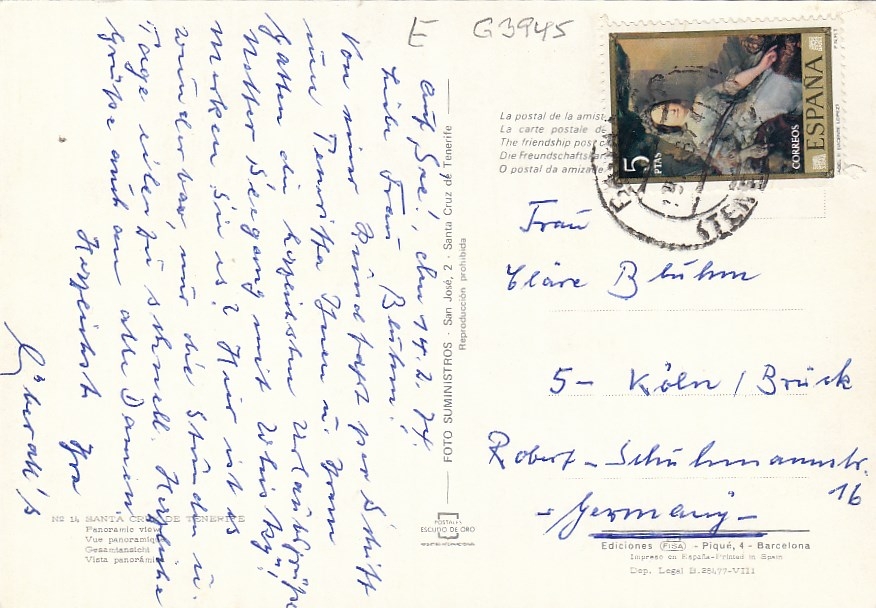 E G3945
Auf See!, den 14.2.74.
Liebe Frau Blühm!
Von einer Rundfahrt per Schiff
um Teneriffa Ihnen u. Ihrem
Gatten die herzlichsten Urlaubsgrüße
Netter Seegang mit Whisky!
merken Sie es? Hier ist es
wunderbar, nur die Stunden u.
Tage eilen zu schnell. Herzliche
Grüße auch an alle Damen.
Herzlichst Ihre
FOTO SUMINISTROS - San José, 2 - Santa Cruz de Tenerife
Reproducción prohibida
Nº 14 SANTA CRUZ DE TENERIFE
Panoramic view
Vue panoramique
Gesamtansicht
Vista panorámica
POSTALES
ESCUDO DE ORO
La postal de la amist
La carte postale de
The friendship post c
Die Freundschafts
O postal da amiza
5
PTAS
CORREOS
ESPAÑA
(TEN
Frau
Cläre Blühm
5- Köln / Brück
Robert-Schuhmannstr.
16
- Germany -
Ediciones FISA - Piqué, 4 - Barcelona
Impreso en España-Printed in Spain
Dep. Legal B. 25477-VIII